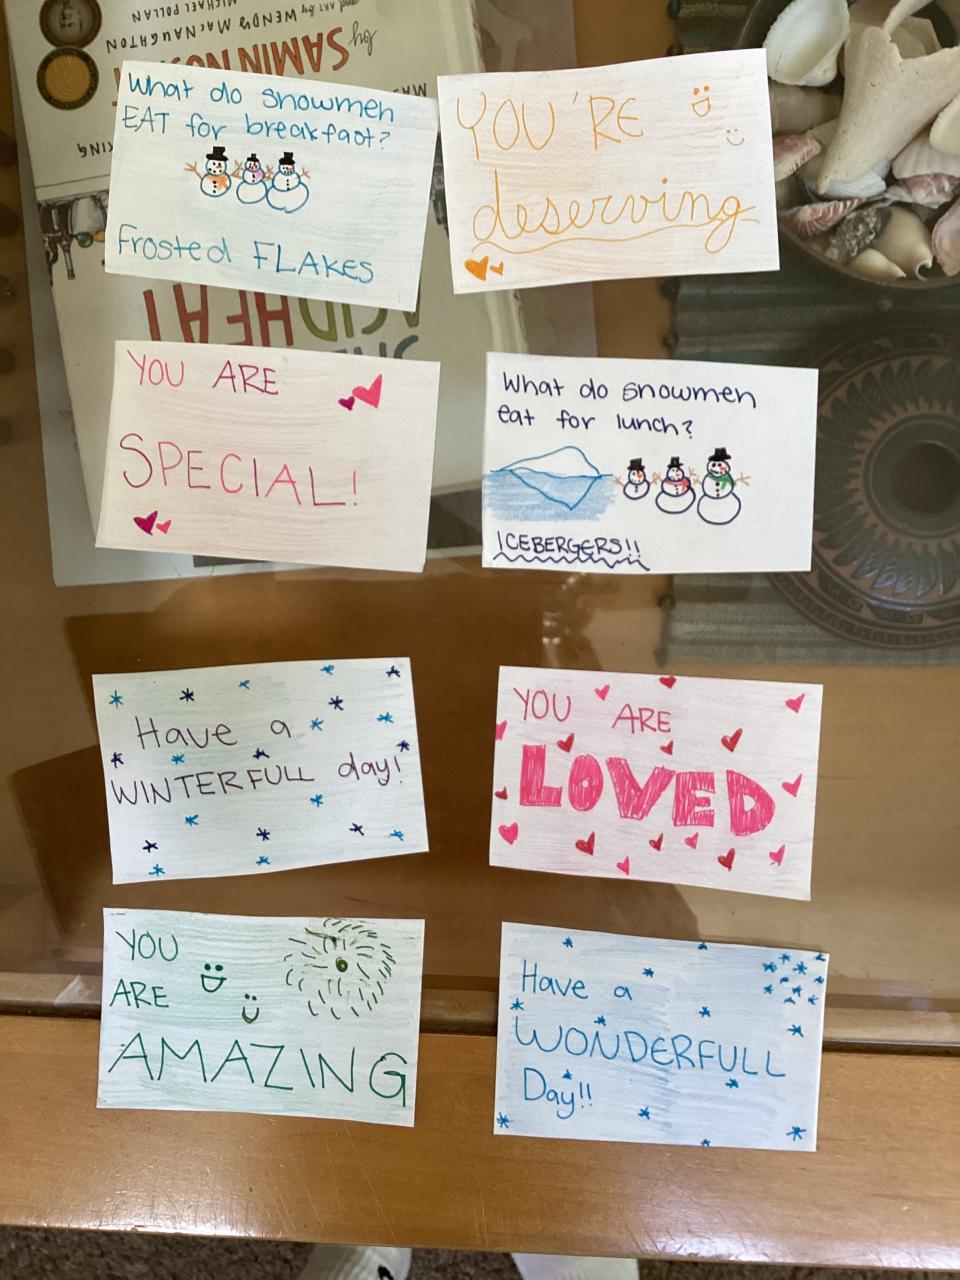 What do snowmen
EAT for breakfast?
Frosted FLAKES
YOU'RE
deserving
YOU ARE
SPECIAL!
What do snowmen
eat for lunch?
ICEBERGERS!!
Have a
WINTERFULL day!
YOU ARE
LOVED
YOU
ARE
AMAZING
Have a
WONDERFULL
Day!!
MICHAEL POLLAN
WENDY MACNAUGHTON
and ART by
by
SAMIN
HEAT
ACID